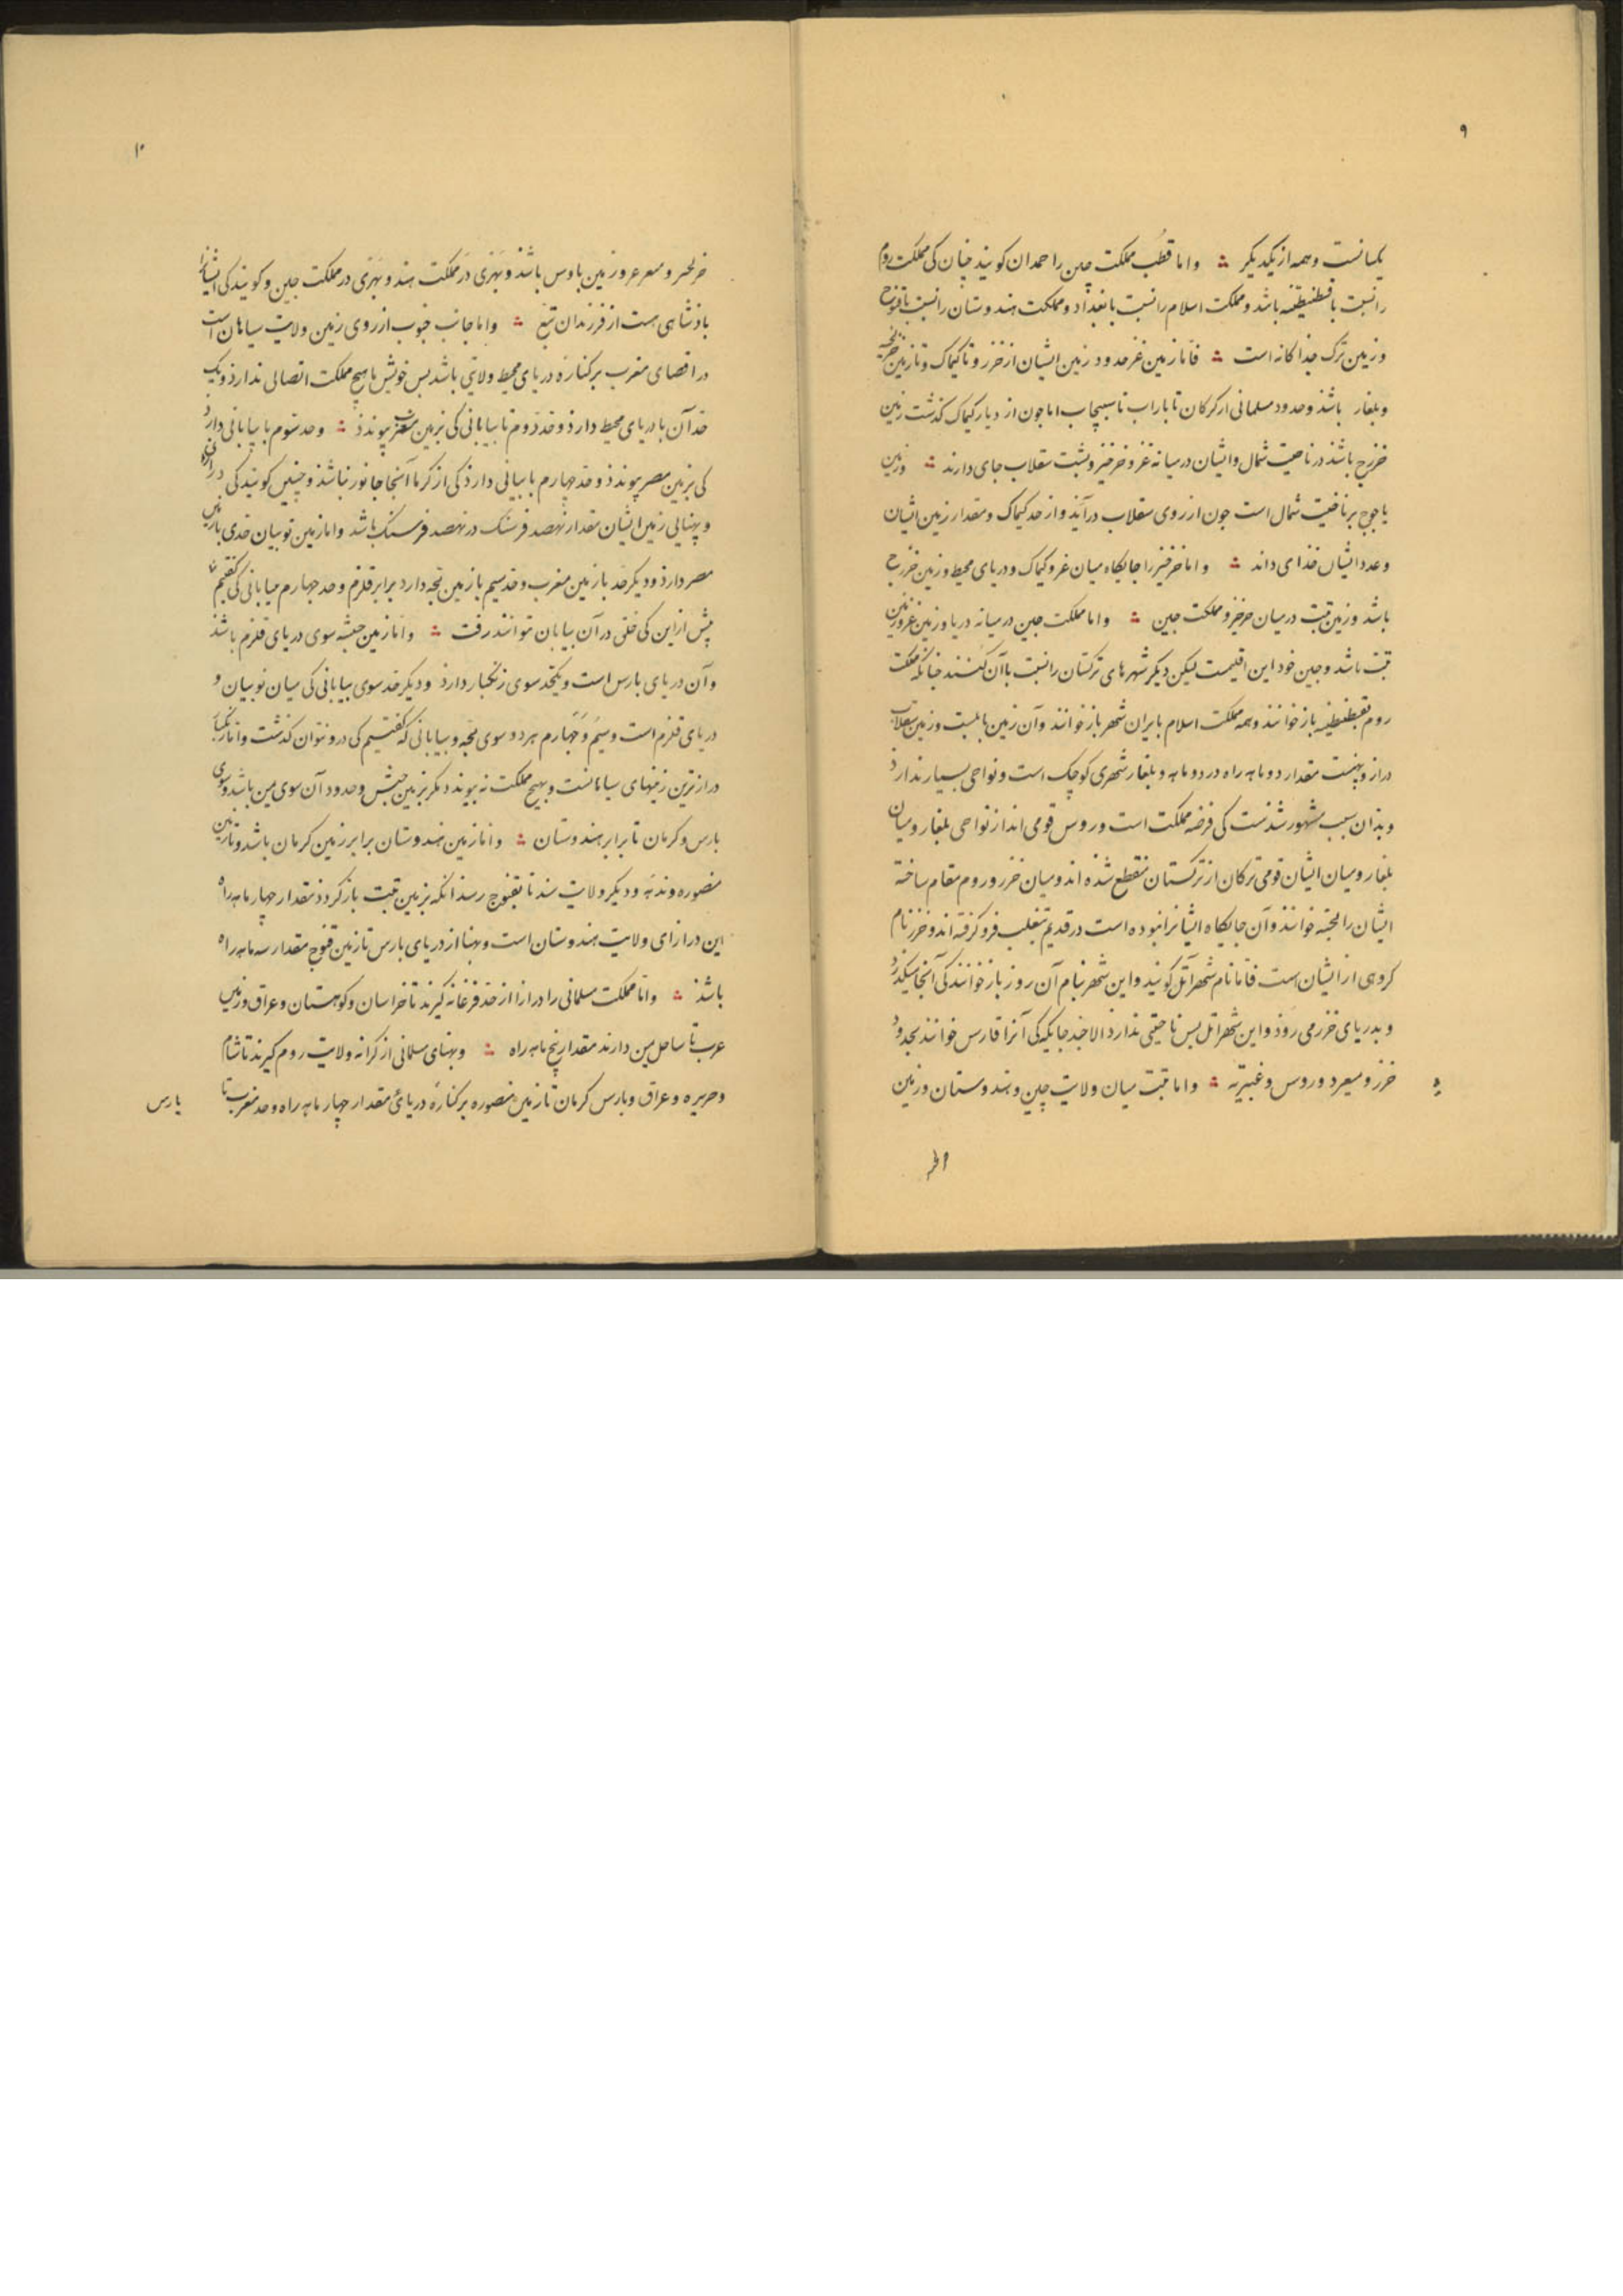 ۹
یکسانست وهمه از یکدیگر ؞ واما قطب مملکت چین را حمدان کویند چنان کی مملکت روم
را نسبت با قسطنطنیه باشد ومملکت اسلام را نسبت با بغداد ومملکت هندوستان را نسبت با قنوج
وزمین ترک جداکانه است ؞ فاما زمین غز حدود زمین ایشان از خزر و تا کیماک وتا زمین خرلخیه
وبلغار باشد وحدود مسلمانی از کرکان تا باراب تا سبیجاب اما جون از دیار کیماک کذشت زمین
خزرج باشد در ناحیت شمال وایشان در میانه غز وخرخیز وبشت سقلاب جای دارند ؞ وزمین
یاجوج بر ناحیت شمال است جون از روی سقلاب درآیند واز حد کیماک ومقدار زمین ایشان
وعدد ایشان خذای داند ؞ واما خرخیز را جایکاه میان غز وکیماک ودریای محیط وزمین خزرج
باشد وزمین تبت در میان خرخیز ومملکت جین ؞ واما مملکت جین در میانه دریا وزمین غز وزمین
تبت باشد وجین خود این اقلیمست لیکن دیکر شهرهای ترکستان را نسبت باآن کنند جنانکه مملکت
روم بقسطنطنیه باز خوانند وهمه مملکت اسلام بایران شهر باز خوانند وآن زمین بابلست وزمین سقلاب
دراز وپهنست مقدار دو ماهه راه در دو ماهه وبلغار شهری کوچک است ونواحی بسیار ندارد
وبدان سبب مشهور شدست کی فرضه مملکت است وروس قومی اند از نواحی بلغار ومیان
بلغار ومیان ایشان قومی ترکان از ترکستان منقطع شده اند ومیان خزر وروم مقام ساخته
ایشان را خوانند وآن جایکاه ایشانرا نبوده است در قدیم بتغلب فرو کرفته اند وخزر نام
کروهی از ایشان است فاما نام شهر آتل کویند واین شهر بنام آن روز باز خوانند کی آنجا میکذرد
وبدریای خزر می روذ واین شهر اتل بس ناحیتی ندارد الا خذ جایکه کی آنرا فارس خوانند بحدود
خزر و وروس وغبریه ؞ واما تبت میان ولایت چین وهندوستان وزمین
۱۰
وزمین بارس باشذ وبهری در مملکت هند وبهری در مملکت چین وکویند کی ایشانرا
بادشاهی هست از فرزندان تبع ؞ واما جانب جنوب از روی زمین ولایت سیاهان است
در اقصای مغرب برکناره دریای محیط ولایتی باشد بس خویش با هیچ مملکت اتصالی نداردو یک
حد آن با دریای محیط دارذ وحد دوم تا بیابانی کی بزمین مغرب پیوندد ؞ وحد سوم با بیابانی دارد
کی بزمین مصر پیوندذ وحد چهارم با بیابانی دارذ کی از کرما آنجا جانور نباشذ وچنین کویند کی درازی
وپهنایی زمین ایشان مقدار نهصد فرسنک در نهصد فرسنک باشد واما زمین نوبیان حدی بازمین
مصر دارذ ودیکر حد بازمین مغرب وحد سیم بازمین بجه دارد برابر قلزم وحد چهارم بیابانی کی کفتیم
پیش ازاین کی خلق درآن بیابان نتوانند رفت ؞ واما زمین حبشه سوی دریای قلزم باشذ
وآن دریای بارس است ویکحد سوی زنکبار دارذ ودیکر حد سوی بیابانی کی میان نوبیان و
دریای قلزم است وسیم وچهارم هردو سوی بجه وبیابانی که کفتیم کی درو نتوان کذشت واما زنکبار
درازترین زمینهای سیاهانست وبهیچ مملکت نه پیوندد مکر بزمین حبش وحدود آن سوی یمن باشد وسوی
بارس وکرمان تا برابر هندوستان ؞ واما زمین هندوستان برابر زمین کرمان باشد وتا زمین
منصوره وبدهه ودیکر ولایت سند تا بقنوج رسد آنکه بزمین تبت باز کردد مقدار چهار ماهه راه
این درازای ولایت هندوستان است وپهنا از دریای بارس تا زمین قنوج مقدار سه ماهه راه
باشذ ؞ واما مملکت مسلمانی را درازا از حد فرغانه کیرند تا خراسان وکوهستان وعراق وزمین
عرب تا ساحل یمن دارند مقدار پنج ماهه راه ؞ وپهنای مسلمانی از کرانه ولایت روم کیرند تا شام
وجزیره وعراق وبارس کرمان تا زمین منصوره برکناره دریای مقدار چهار ماهه راه وحد مغرب تا
بارس